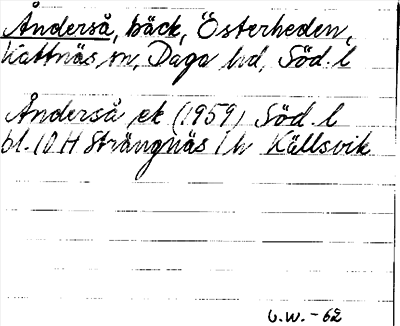 Ånderså, bäck, Österheden,
Kattnäs sn, Daga hd, Söd. l
Ånderså, ek (1959) Söd. l
bl. 10 H Strängnäs 1 h Källsvik
U.W. - 62